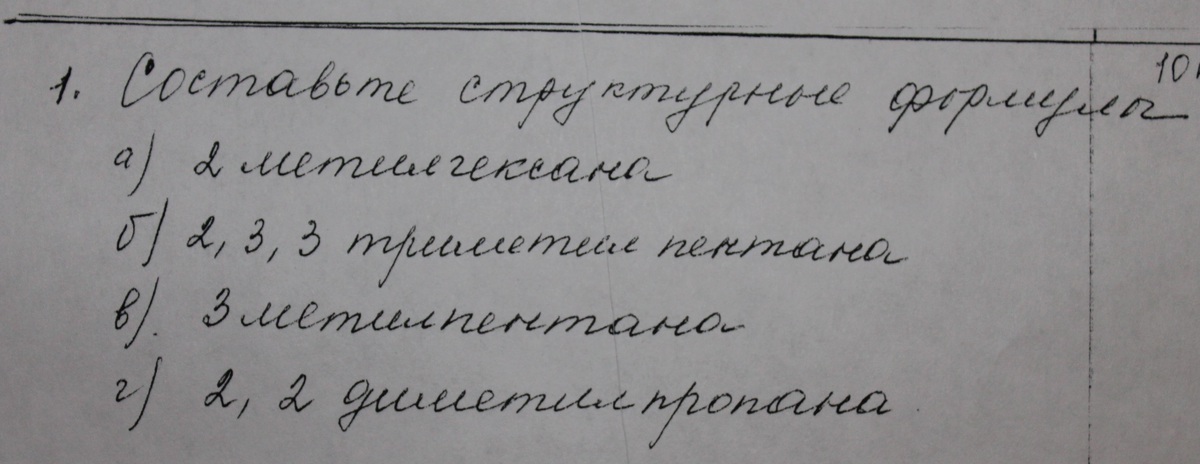 10
1. Составьте структурные формулы
а) 2 метилгексана
б) 2, 3, 3 триметил пентана
в). 3 метилпентана
г) 2, 2 диметилпропана